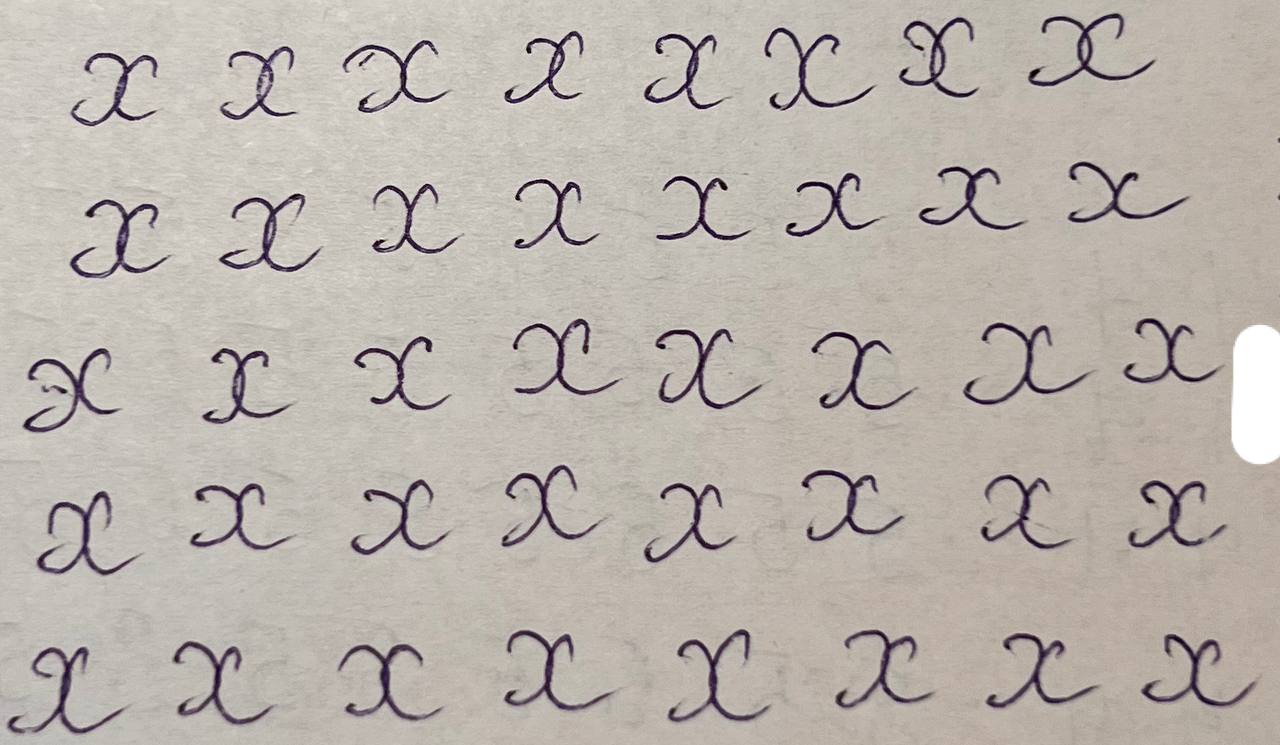 x x x x x x x x
x x x x x x x x
x x x x x x x x
x x x x x x x x
x x x x x x x x